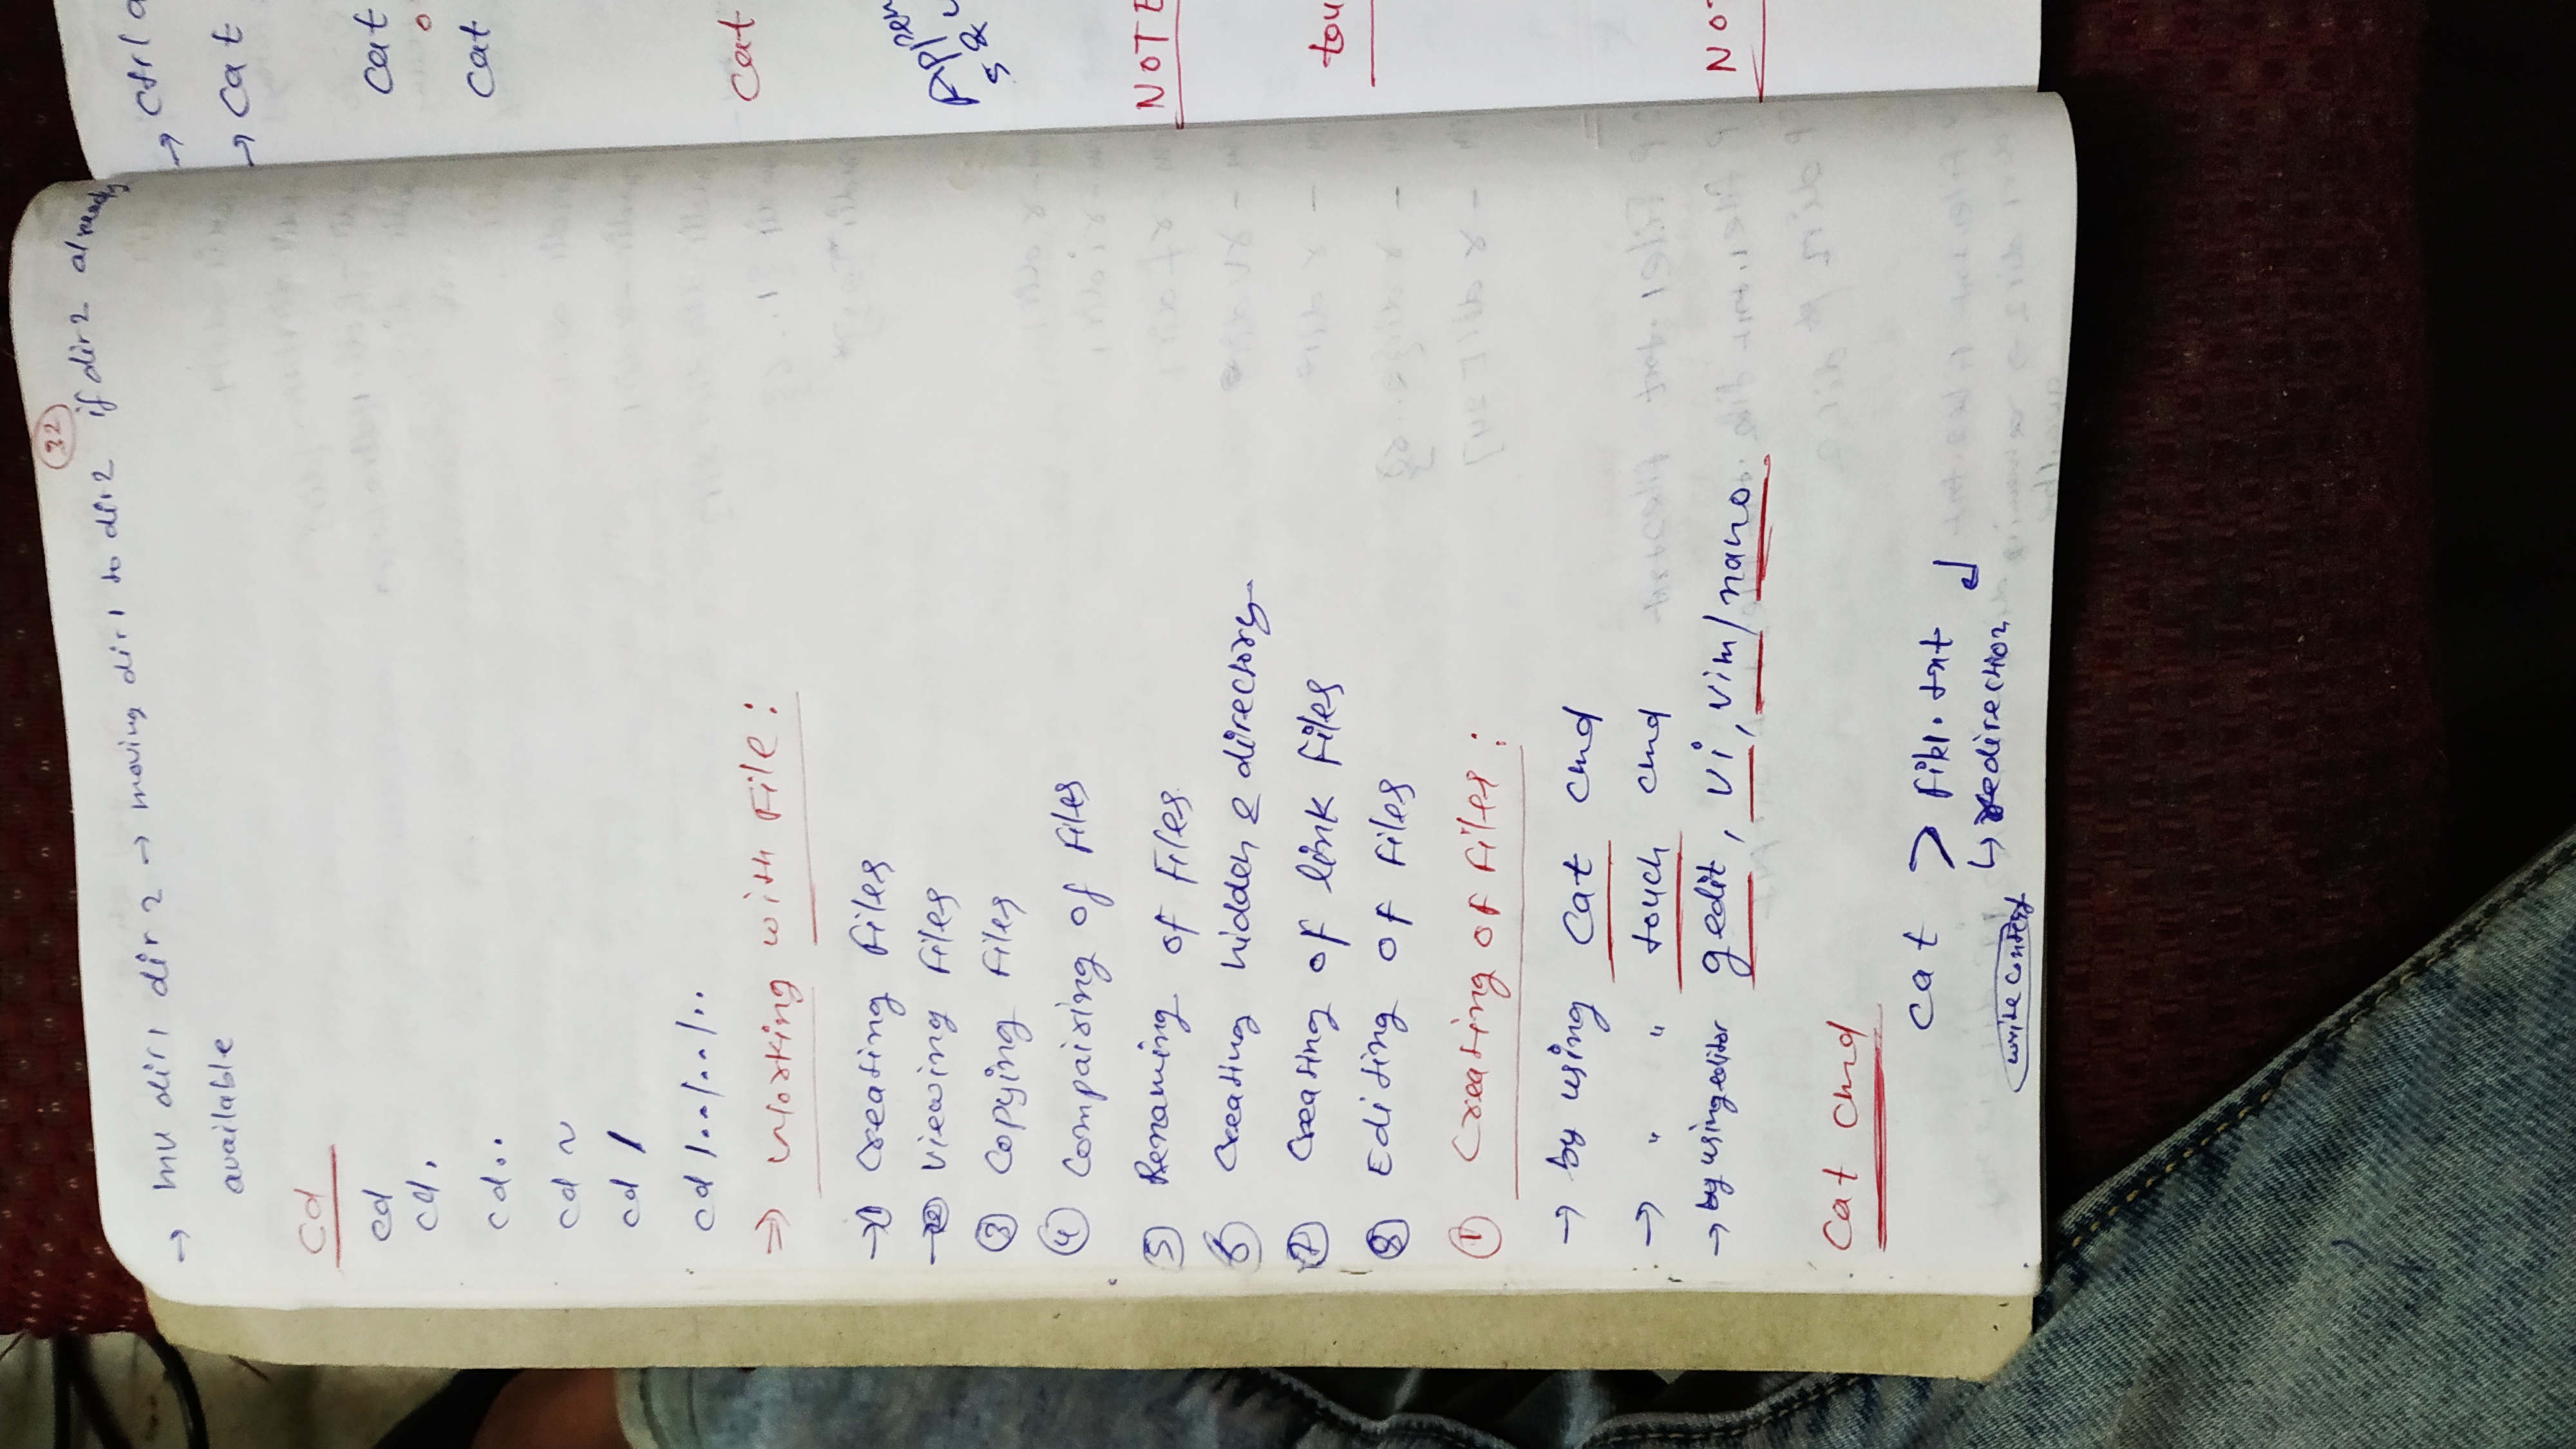 32
→ mv dir1 dir2 → moving dir1 to dir2 if dir2 already
available
cd
cd
cd.
cd..
cd ~
cd /
cd /../../..
⇒ Working with File:
→① Creating files
→② Viewing files
③ Copying files
④ Compairing of files
⑤ Renaming of Files
⑥ Creating hidden & directory
⑦ Creating of link files
⑧ Editing of files
① Creating of files:
→ by using cat cmd
→ " " touch cmd
→ by using editor gedit, vi, vim/nano
Cat cmd
cat > file1.txt ↲
↳ redirection
write content
→ ctrl
→ cat
cat
cat
cat
Appen
NOTE
tou
NOT